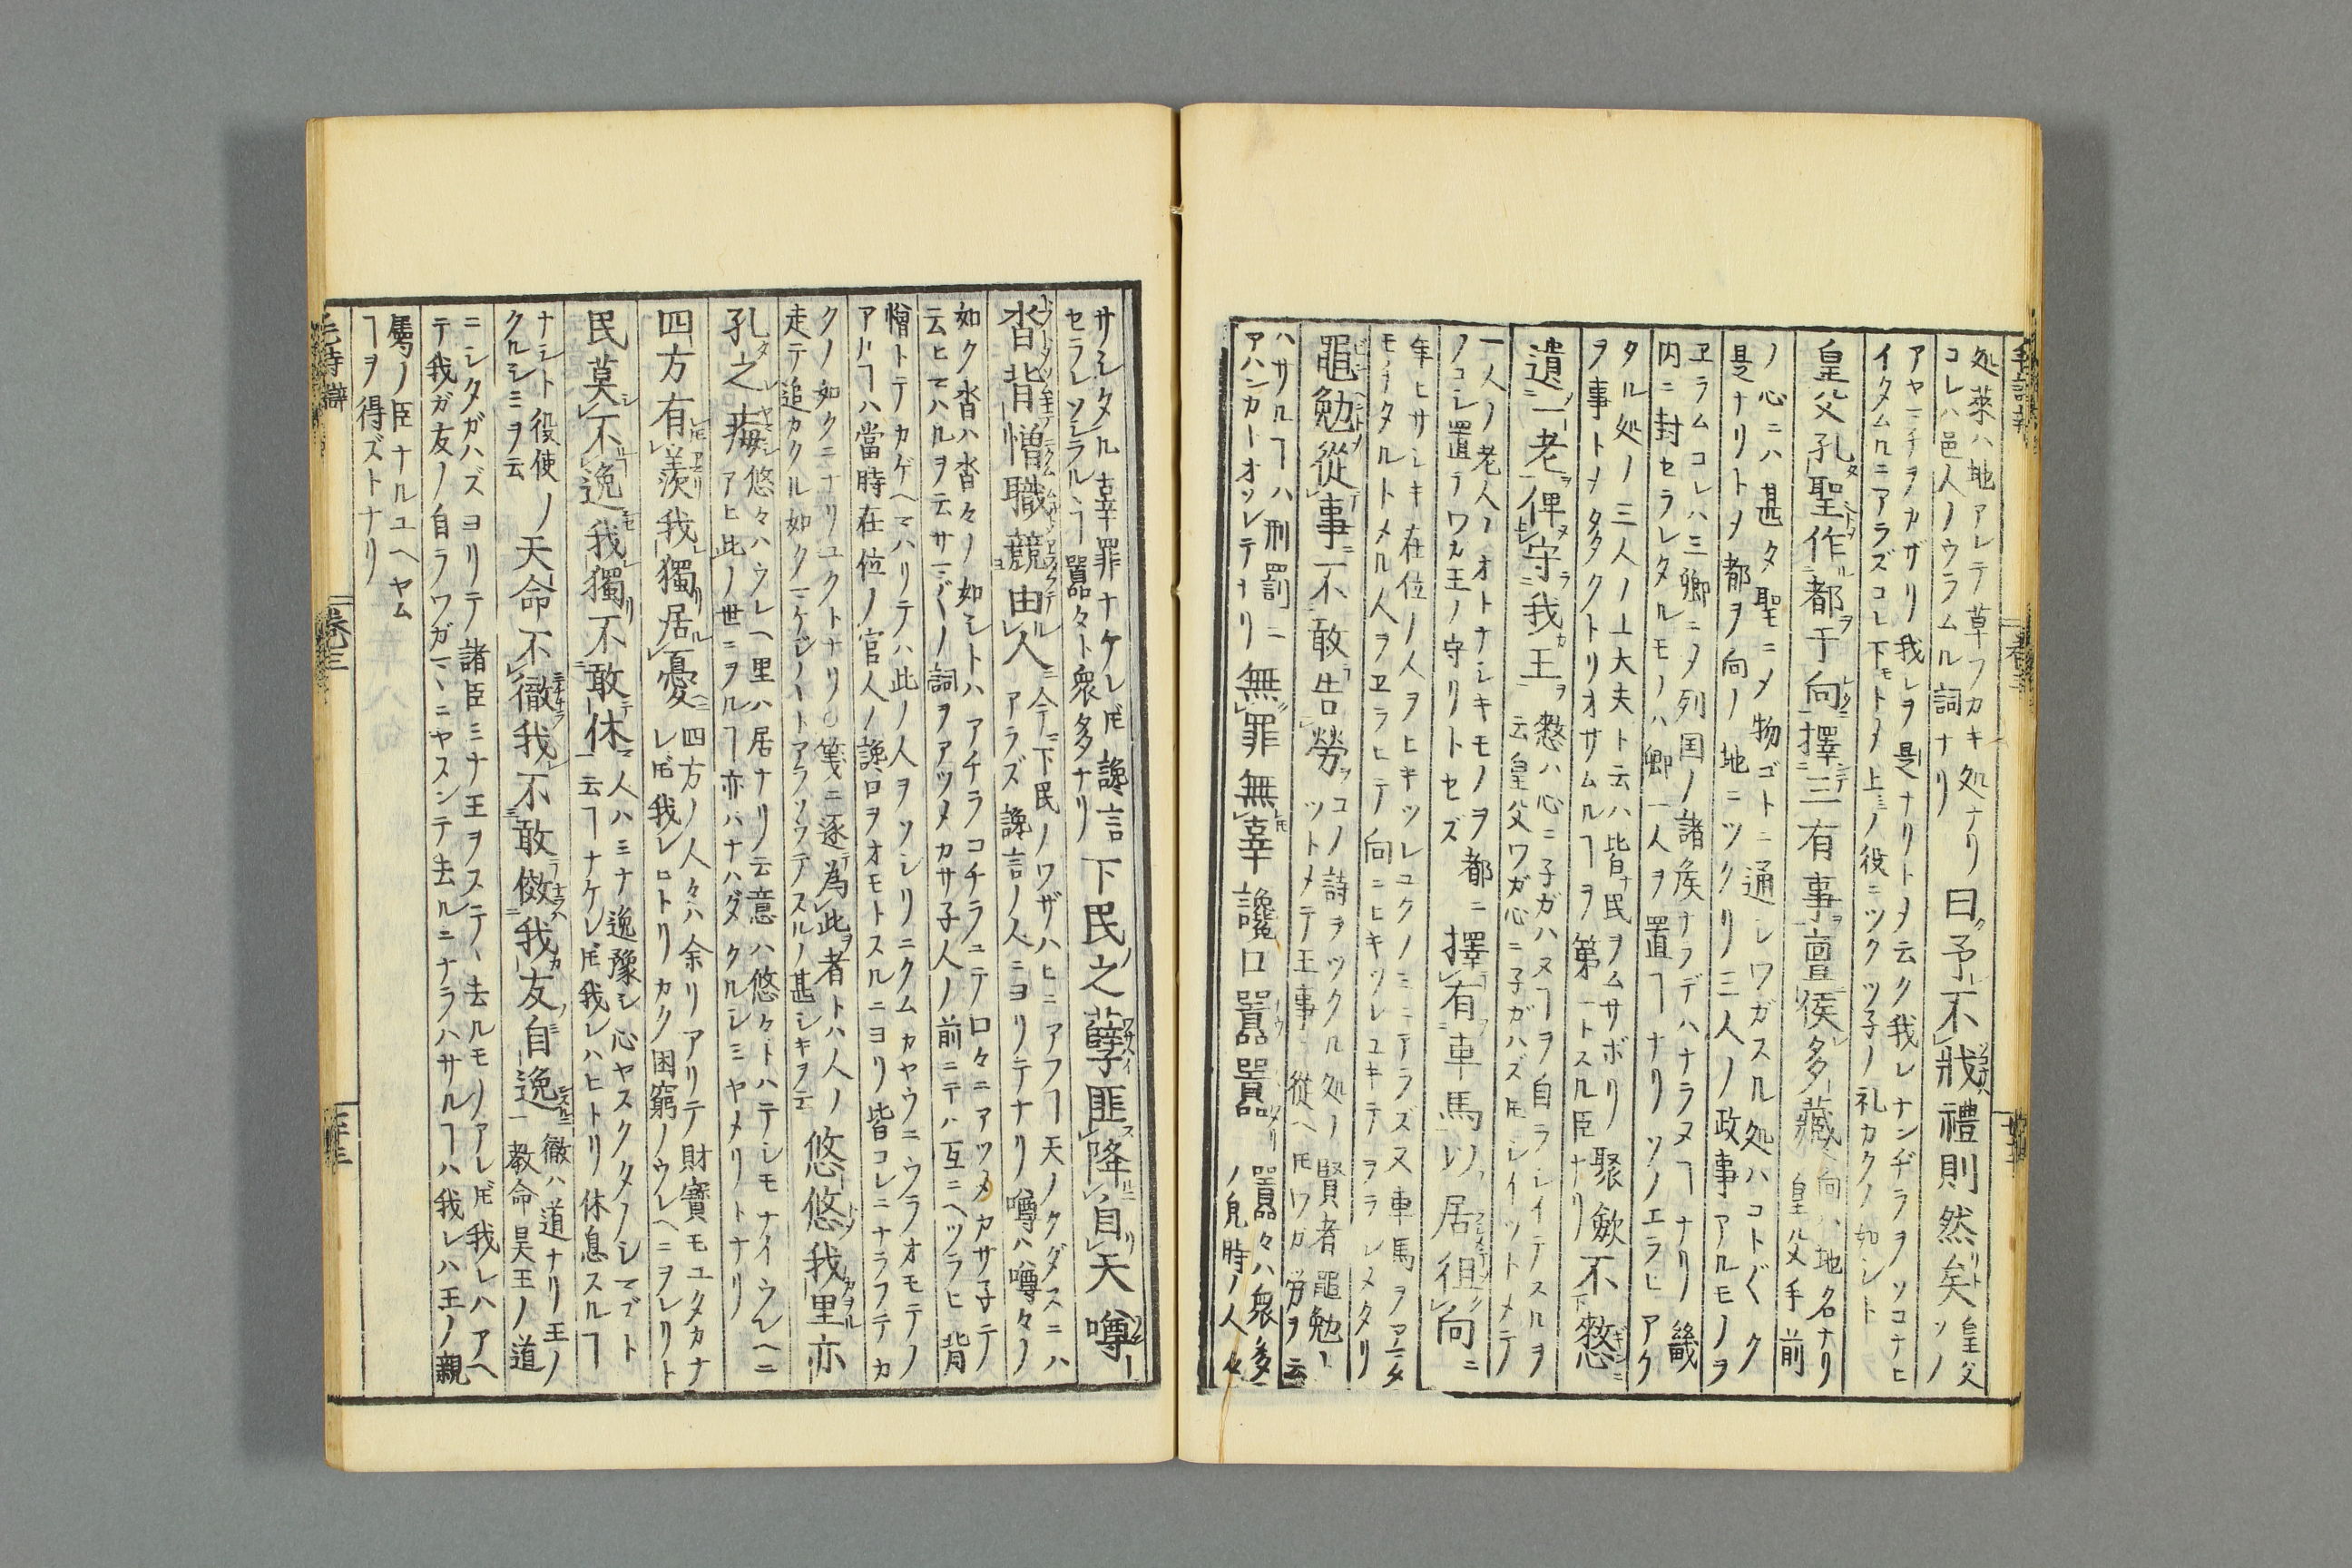 処萊ハ地アレテ草フカキ処ナリ
コレハ邑人ノウラムル詞ナリ
曰予不戕禮則然矣
皇父
ソノ
アヤマチヲカザリ我レヲ是ナリトメ云ク我レナンヂラヲソコナヒ
イタムルニアラズコレ下モトメ上ミノ役ニツクツ子ノ礼カクノ如シト
皇父孔聖作都于向擇三有事亶侯多藏
向ハ地名ナリ
皇父手前
ノ心ニハ甚タ聖ニメ物ゴトニ通シワガスル処ハコト〲ク
是ナリトメ都ヲ向ノ地ニツクリ三人ノ政事アルモノヲ
ヱラムコレハ三卿ニメ列国ノ諸侯ナフデハナラヌヿナリ畿
内ニ封セラレタルモノハ卿一人ヲ置ヿナリソノエラヒアク
タル処ノ三人ノ上大夫ト云ハ皆ナ民ヲムサボリ聚歛
ヲ事トメ多クトリオサムルヿヲ第一トスル臣ナリ
不憖
遺一老俾守我王
憖ハ心ニ子ガハヌヿヲ自ラシイテスルヲ
云皇父ワガ心ニ子ガハズ𪜈シイツトメテ
一人ノ老人ノオトナシキモノヲ都ニ
ノコシ置テワカ王ノ守リトセズ
擇有車馬以居徂向
年ヒサシキ在位ノ人ヲヒキツレユクノミニテラズ又車馬ヲアマタ
モチタルトメル人ヲヱラヒテ向ニヒキツレユキテヲラシメタリ
黽勉從事不敢告勞
コノ詩ヲツクル処ノ賢者黽勉シ
ツトメテ王事ニ從ヘ𪜈ワガ労ヲ云
ハサルヿハ刑罰ニ
アハンカトオソレテナリ
無罪無辜讒口囂囂
囂々ハ衆多
ノ皃時ノ人々
サシタル辜罪ナケレ𪜈讒言
セラレソシラルヽヿ囂々ト衆多ナリ
下民之孽匪降自天噂
沓背憎職競由人
今マ下民ノワザハヒニアフヿ天ノクダスニハ
アラズ讒言ノ人ニヨリテナリ噂ハ噂々ノ
如ク沓ハ沓々ノ如シトハアチラコチラニテ口々ニアツメカサ子テ
云ヒマハルヲ云サマ〲ノ詞ヲアツメカサ子人ノ前ニテハ互ニヘツラヒ背
憎トテカゲヘマハリテハ此ノ人ヲソシリニクムカヤウニウラオモテノ
アルヿハ當時在位ノ官人ノ讒口ヲオモトスルニヨリ皆コレニナラフテカ
クノ如クニナリユクトナリ○箋ニ逐為此者トハ人ノ
走テ追カクル如クマケジノ〳〵トアラソウテスルノ甚シキヲ云
悠悠我里亦
孔之痗
悠々ハウレヘ里ハ居ナリノ云意ハ悠々トハテシモナイウレヘニ
アヒ此ノ世ニヲルヿ亦ハナハダクルシミヤメリトナリ
四方有羨我獨居憂
四方ノ人々ハ余リアリテ財寶モユタカナ
レ𪜈我レヒトリカク困窮ノウレヘニヲレリト
民莫不逸我獨不敢休
人ハミナ逸豫シ心ヤスクタノシマプト
云ヿナケレ𪜈我レハヒトリ休息スルヿ
ナシト役使ノ
クルシミヲ云
天命不徹我不敢傚我友自逸
徹ハ道ナリ王ノ
教命昊王ノ道
ニシタガハズヨリテ諸臣ミナ王ヲステヽ去ルモノアレ𪜈我レハアヘ
テ我ガ友ノ自ラワガマヽニヤスンテ去ルニナラハサルヿハ我レハ王ノ親
屬ノ臣ナルユヘヤム
ヿヲ得ズトナリ
毛詩辯
卷三